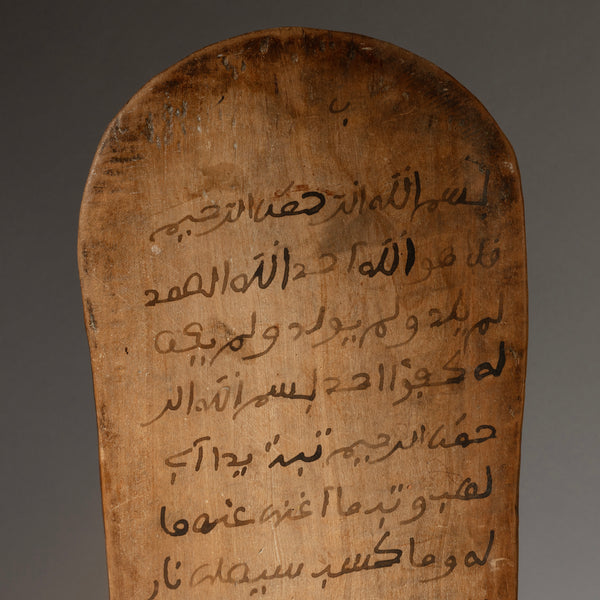 ب
بسم الله الرحمن الرحيم
قل هو الله احد الله الصمد
لم يلد ولم يولد ولم يكن
له كفؤا احد بسم الله الر
حمن الرحيم تبت يدا أبي
لهب وتب ما أغنى عنه ما
له وما كسب سيصلى نار